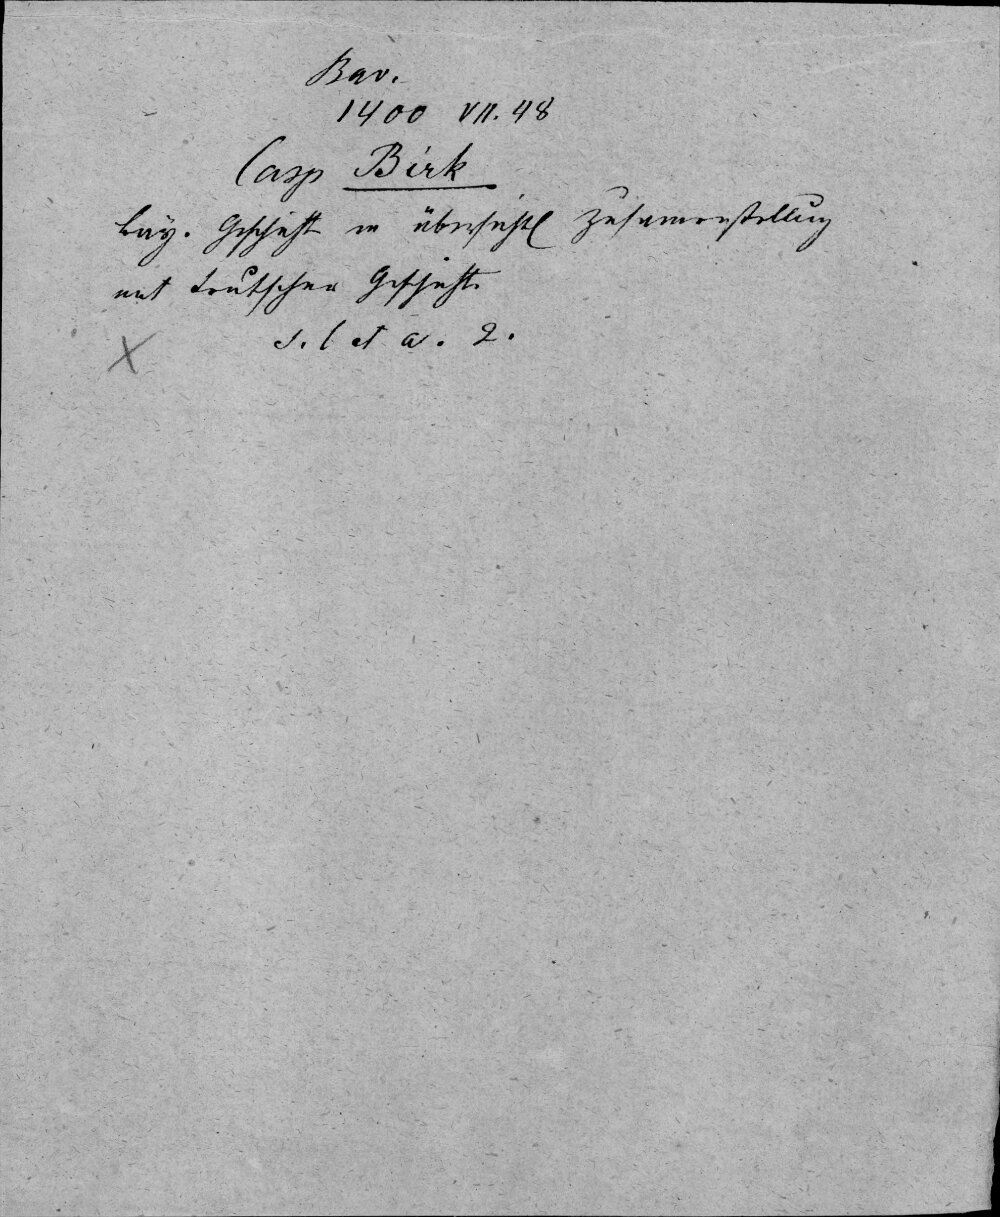 Bav.
1400 VII. 48
Casp Birk
bay. Geschicht in übersichtl Zusamenstellung
mit teutscher Geschichte
s. l et a. 2.
X